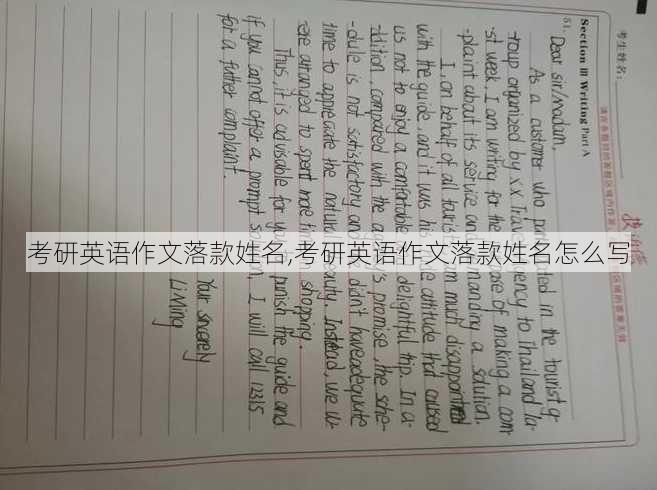 考研英语作文落款姓名,考研英语作文落款姓名怎么写
考生姓名:
投诉信
Section III Writing Part A
51.
Dear Sir/Madam,
As a customer who ated in the tourist g-
-roup organized by XX Travel gency to Thailand la-
-st week, I am writing for the ose of making a com-
-plaint about its service and manding a solution.
I, on behalf of all touris am much disappointed
with the guide, and it was his e attitude that caused
us not to enjoy a comfortable delightful trip. In a-
-ddition, compared with the ag y's promise, the sche-
-dule is not satisfactory and e didn't have adequate
time to appreciate the natur eauty. Instead, we w-
ere arranged to spent more tim n shopping.
Thus, it is advisable for you punish the guide and
if you cannot offer a prompt s on, I will call 12315
for a futher complaint.
Your Sincerely
Li Ming